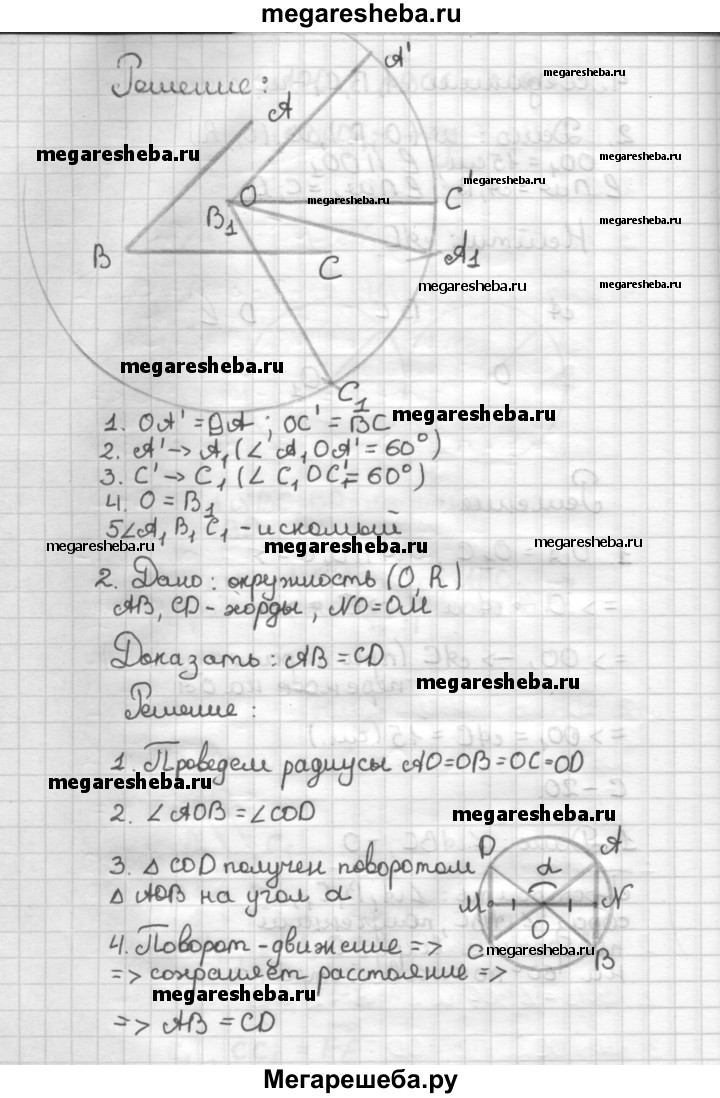 megaresheba.ru
Решение:
A'
A
megaresheba.ru
megaresheba.ru
megaresheba.ru
O
megaresheba.ru
C'
B₁
megaresheba.ru
B
C
A₁
megaresheba.ru
megaresheba.ru
megaresheba.ru
C₁
1. OA' = BA ; OC' = BC
megaresheba.ru
2. A' → A₁ (∠ A₁OA' = 60°)
3. C' → C₁ (∠ C₁OC' = 60°)
4. O = B₁
5∠A₁B₁C₁ - искомый
megaresheba.ru
megaresheba.ru
megaresheba.ru
2. Дано: окружность (O, R)
AB, CD - хорды, NO = OM
Доказать: AB = CD
megaresheba.ru
Решение:
1. Проведем радиусы AO=OB=OC=OD
megaresheba.ru
2. ∠AOB = ∠COD
megaresheba.ru
3. Δ COD получен поворотом
Δ AOB на угол α
D
A
α
M
N
O
C
B
megaresheba.ru
4. Поворот - движение =>
=> сохраняет расстояние =>
megaresheba.ru
=> AB = CD
Мегарешеба.ру